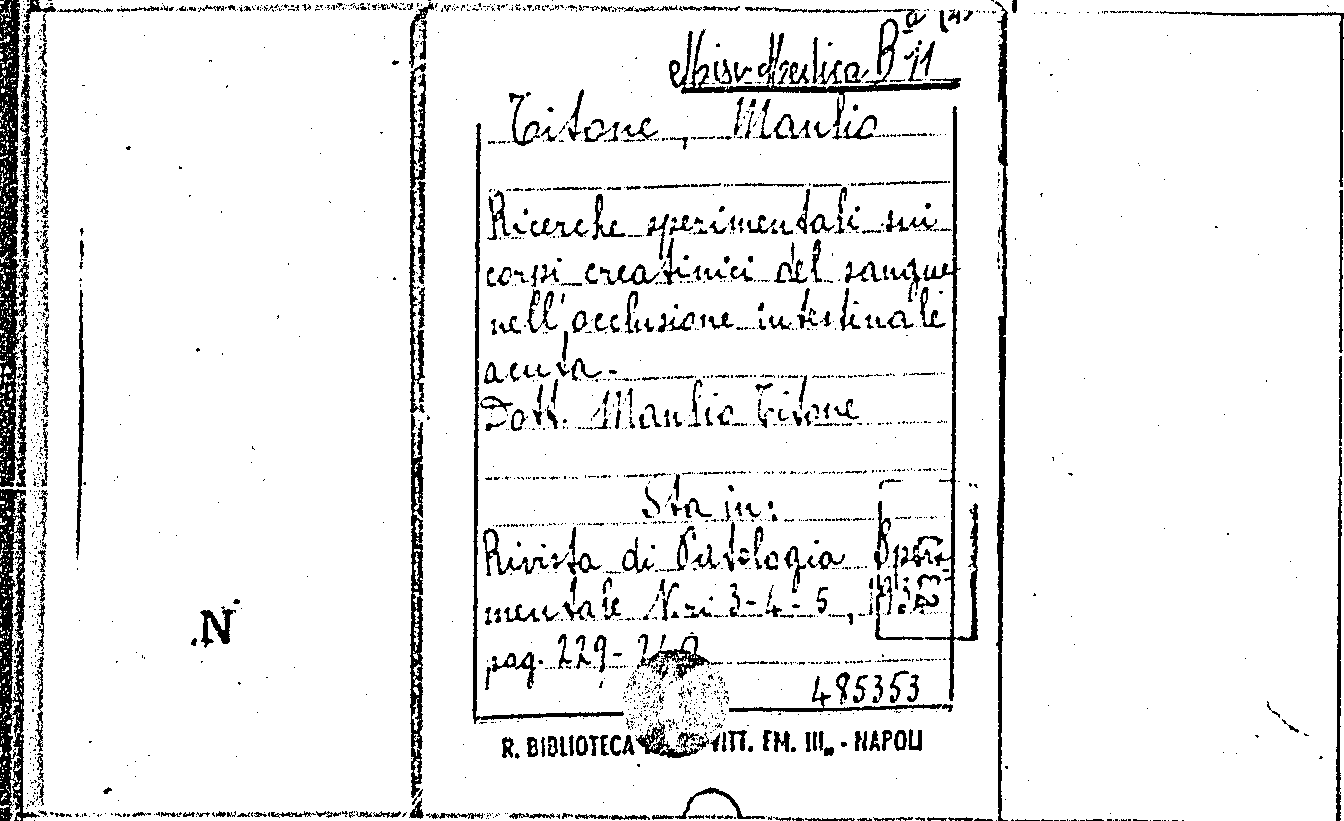 Misc. Medica B 11
Titone, Manlio
Ricerche sperimentali sui
corpi creatinici del sangue
nell'occlusione intestinale
acuta.
Dott. Manlio Titone
Sta in:
Rivista di Patologia Speri-
mentale N.ri 3-4-5,
pag. 229-240
485353
R. BIBLIOTECA VITT. EM. III„ - NAPOLI
.N